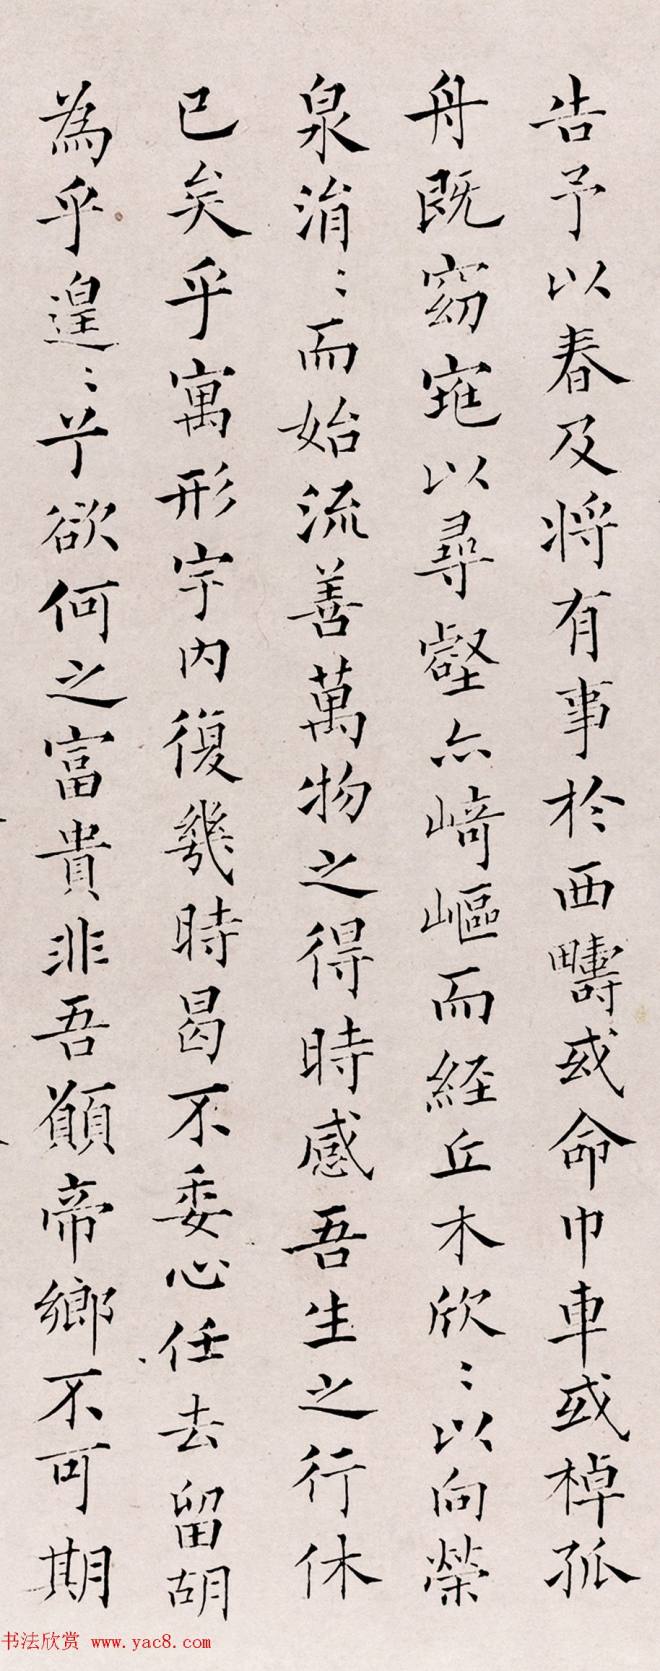 告予以春及将有事於西疇或命巾車或棹孤
舟既窈窕以尋壑亦崎嶇而経丘木欣〻以向榮
泉涓〻而始流善萬物之得時感吾生之行休
已矣乎寓形宇内復幾時曷不委心任去留胡
為乎遑〻兮欲何之富貴非吾願帝鄉不可期
书法欣赏 www.yac8.com